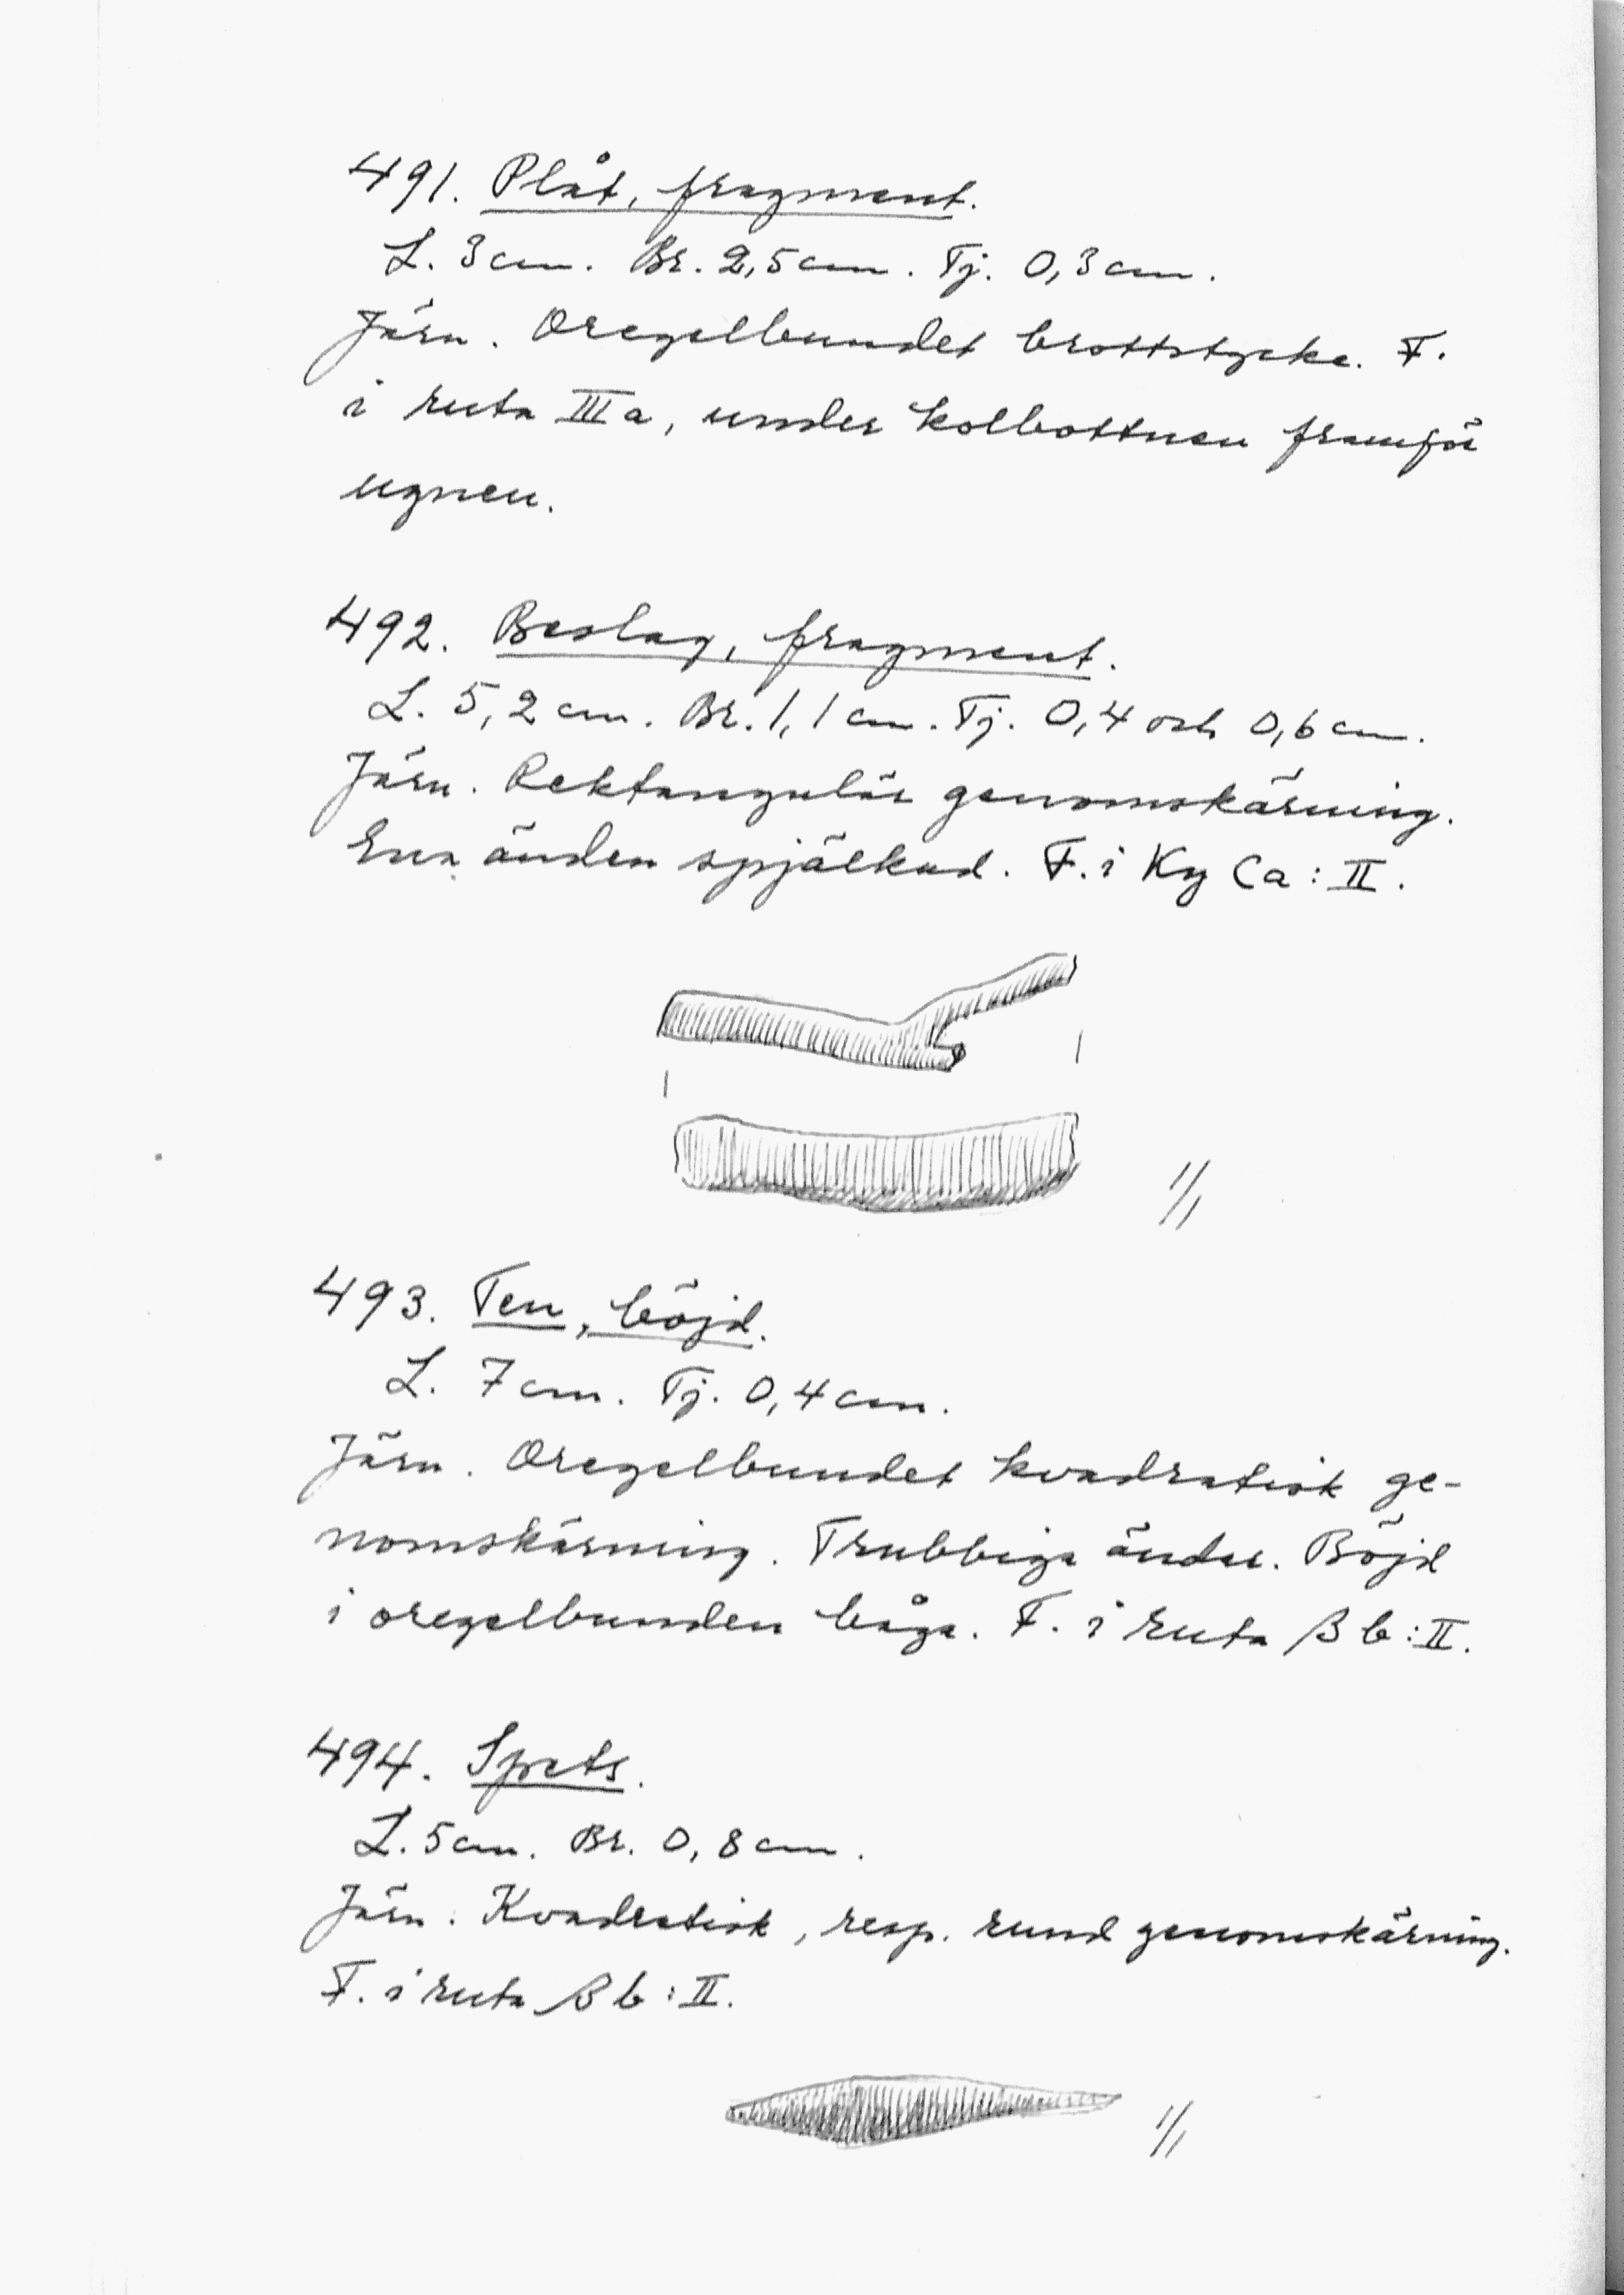 491. Plåt, fragment.
L. 3 cm. Br. 2,5 cm. Tj. 0,3 cm.
Järn. Oregelbundet brottstycke. F.
i ruta III a, under kolbottnen framför
ugnen.
492. Beslag, fragment.
L. 5,2 cm. Br. 1,1 cm. Tj. 0,4 och 0,6 cm.
Järn. Rektangulär genomskärning.
Ena änden spjälkad. F. i Ky Ca : II.
1/1
493. Ten, böjd.
L. 7 cm. Tj. 0,4 cm.
Järn. Oregelbundet kvadratisk ge-
nomskärning. Trubbiga ändar. Böjd
i oregelbunden båge. F. i ruta B b : II.
494. Spets.
L. 5 cm. Br. 0,8 cm.
Järn. Kvadratisk, resp. rund genomskärning.
F. i ruta B b : II.
1/1